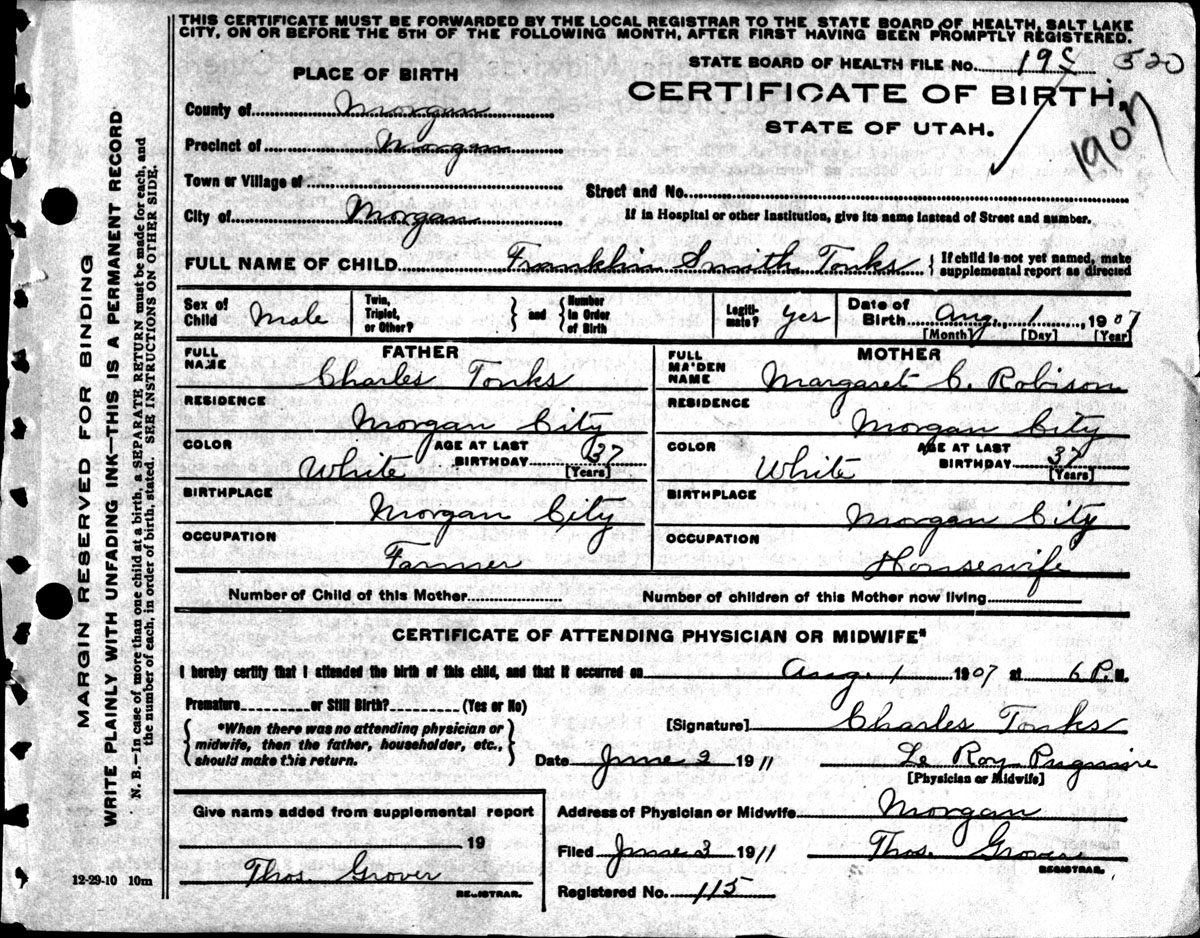 THIS CERTIFICATE MUST BE FORWARDED BY THE LOCAL REGISTRAR TO THE STATE BOARD OF HEALTH, SALT LAKE
CITY, ON OR BEFORE THE 5TH OF THE FOLLOWING MONTH, AFTER FIRST HAVING BEEN PROMPTLY REGISTERED.
STATE BOARD OF HEALTH FILE No. 195 520
PLACE OF BIRTH
CERTIFICATE OF BIRTH,
1907
STATE OF UTAH.
County of Morgan
Precinct of Morgan
Town or Village of
Street and No.
City of Morgan
If in Hospital or other Institution, give its name instead of Street and number.
FULL NAME OF CHILD Franklin Smith Tonks { If child is not yet named, make
supplemental report as directed
Sex of Child Male
Twin, Triplet, or Other? } and { Number in Order of Birth
Legiti-mate? Yes
Date of Birth Aug. 1, 1907
[Month] [Day] [Year]
FATHER
FULL NAME Charles Tonks
RESIDENCE Morgan City
COLOR White AGE AT LAST BIRTHDAY 37 [Years]
BIRTHPLACE Morgan City
OCCUPATION Farmer
MOTHER
FULL MAIDEN NAME Margaret C. Robison
RESIDENCE Morgan City
COLOR White AGE AT LAST BIRTHDAY 37 [Years]
BIRTHPLACE Morgan City
OCCUPATION Housewife
Number of Child of this Mother Number of children of this Mother now living
CERTIFICATE OF ATTENDING PHYSICIAN OR MIDWIFE*
I hereby certify that I attended the birth of this child, and that it occurred on Aug. 1 1907 at 6 P. M.
Premature or Still Birth? (Yes or No)
[Signature] Charles Tonks
{ *When there was no attending physician or
midwife, then the father, householder, etc.,
should make this return. }
Date June 2 1911 Le Roy
[Physician or Midwife]
Give name added from supplemental report
19
Thos. Grover
REGISTRAR.
Address of Physician or Midwife Morgan
Filed June 3 1911 Thos. Grover
REGISTRAR.
Registered No. 115
MARGIN RESERVED FOR BINDING
WRITE PLAINLY WITH UNFADING INK—THIS IS A PERMANENT RECORD
N. B.—In case of more than one child at a birth, a SEPARATE RETURN must be made for each, and
the number of each, in order of birth, stated. SEE INSTRUCTIONS ON OTHER SIDE.
12-29-10 10m